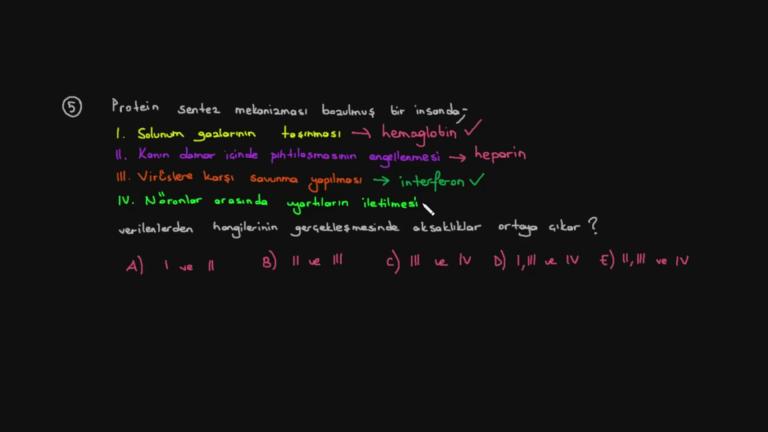 5 Protein sentez mekanizması bozulmuş bir insanda;
I. Solunum gazlarının taşınması → hemoglobin ✓
II. Kanın damar içinde pıhtılaşmasının engellenmesi → heparin
III. Virüslere karşı savunma yapılması → interferon ✓
IV. Nöronlar arasında uyartıların iletilmesi
verilenlerden hangilerinin gerçekleşmesinde aksaklıklar ortaya çıkar ?
A) I ve II B) II ve III C) III ve IV D) I, III ve IV E) II, III ve IV